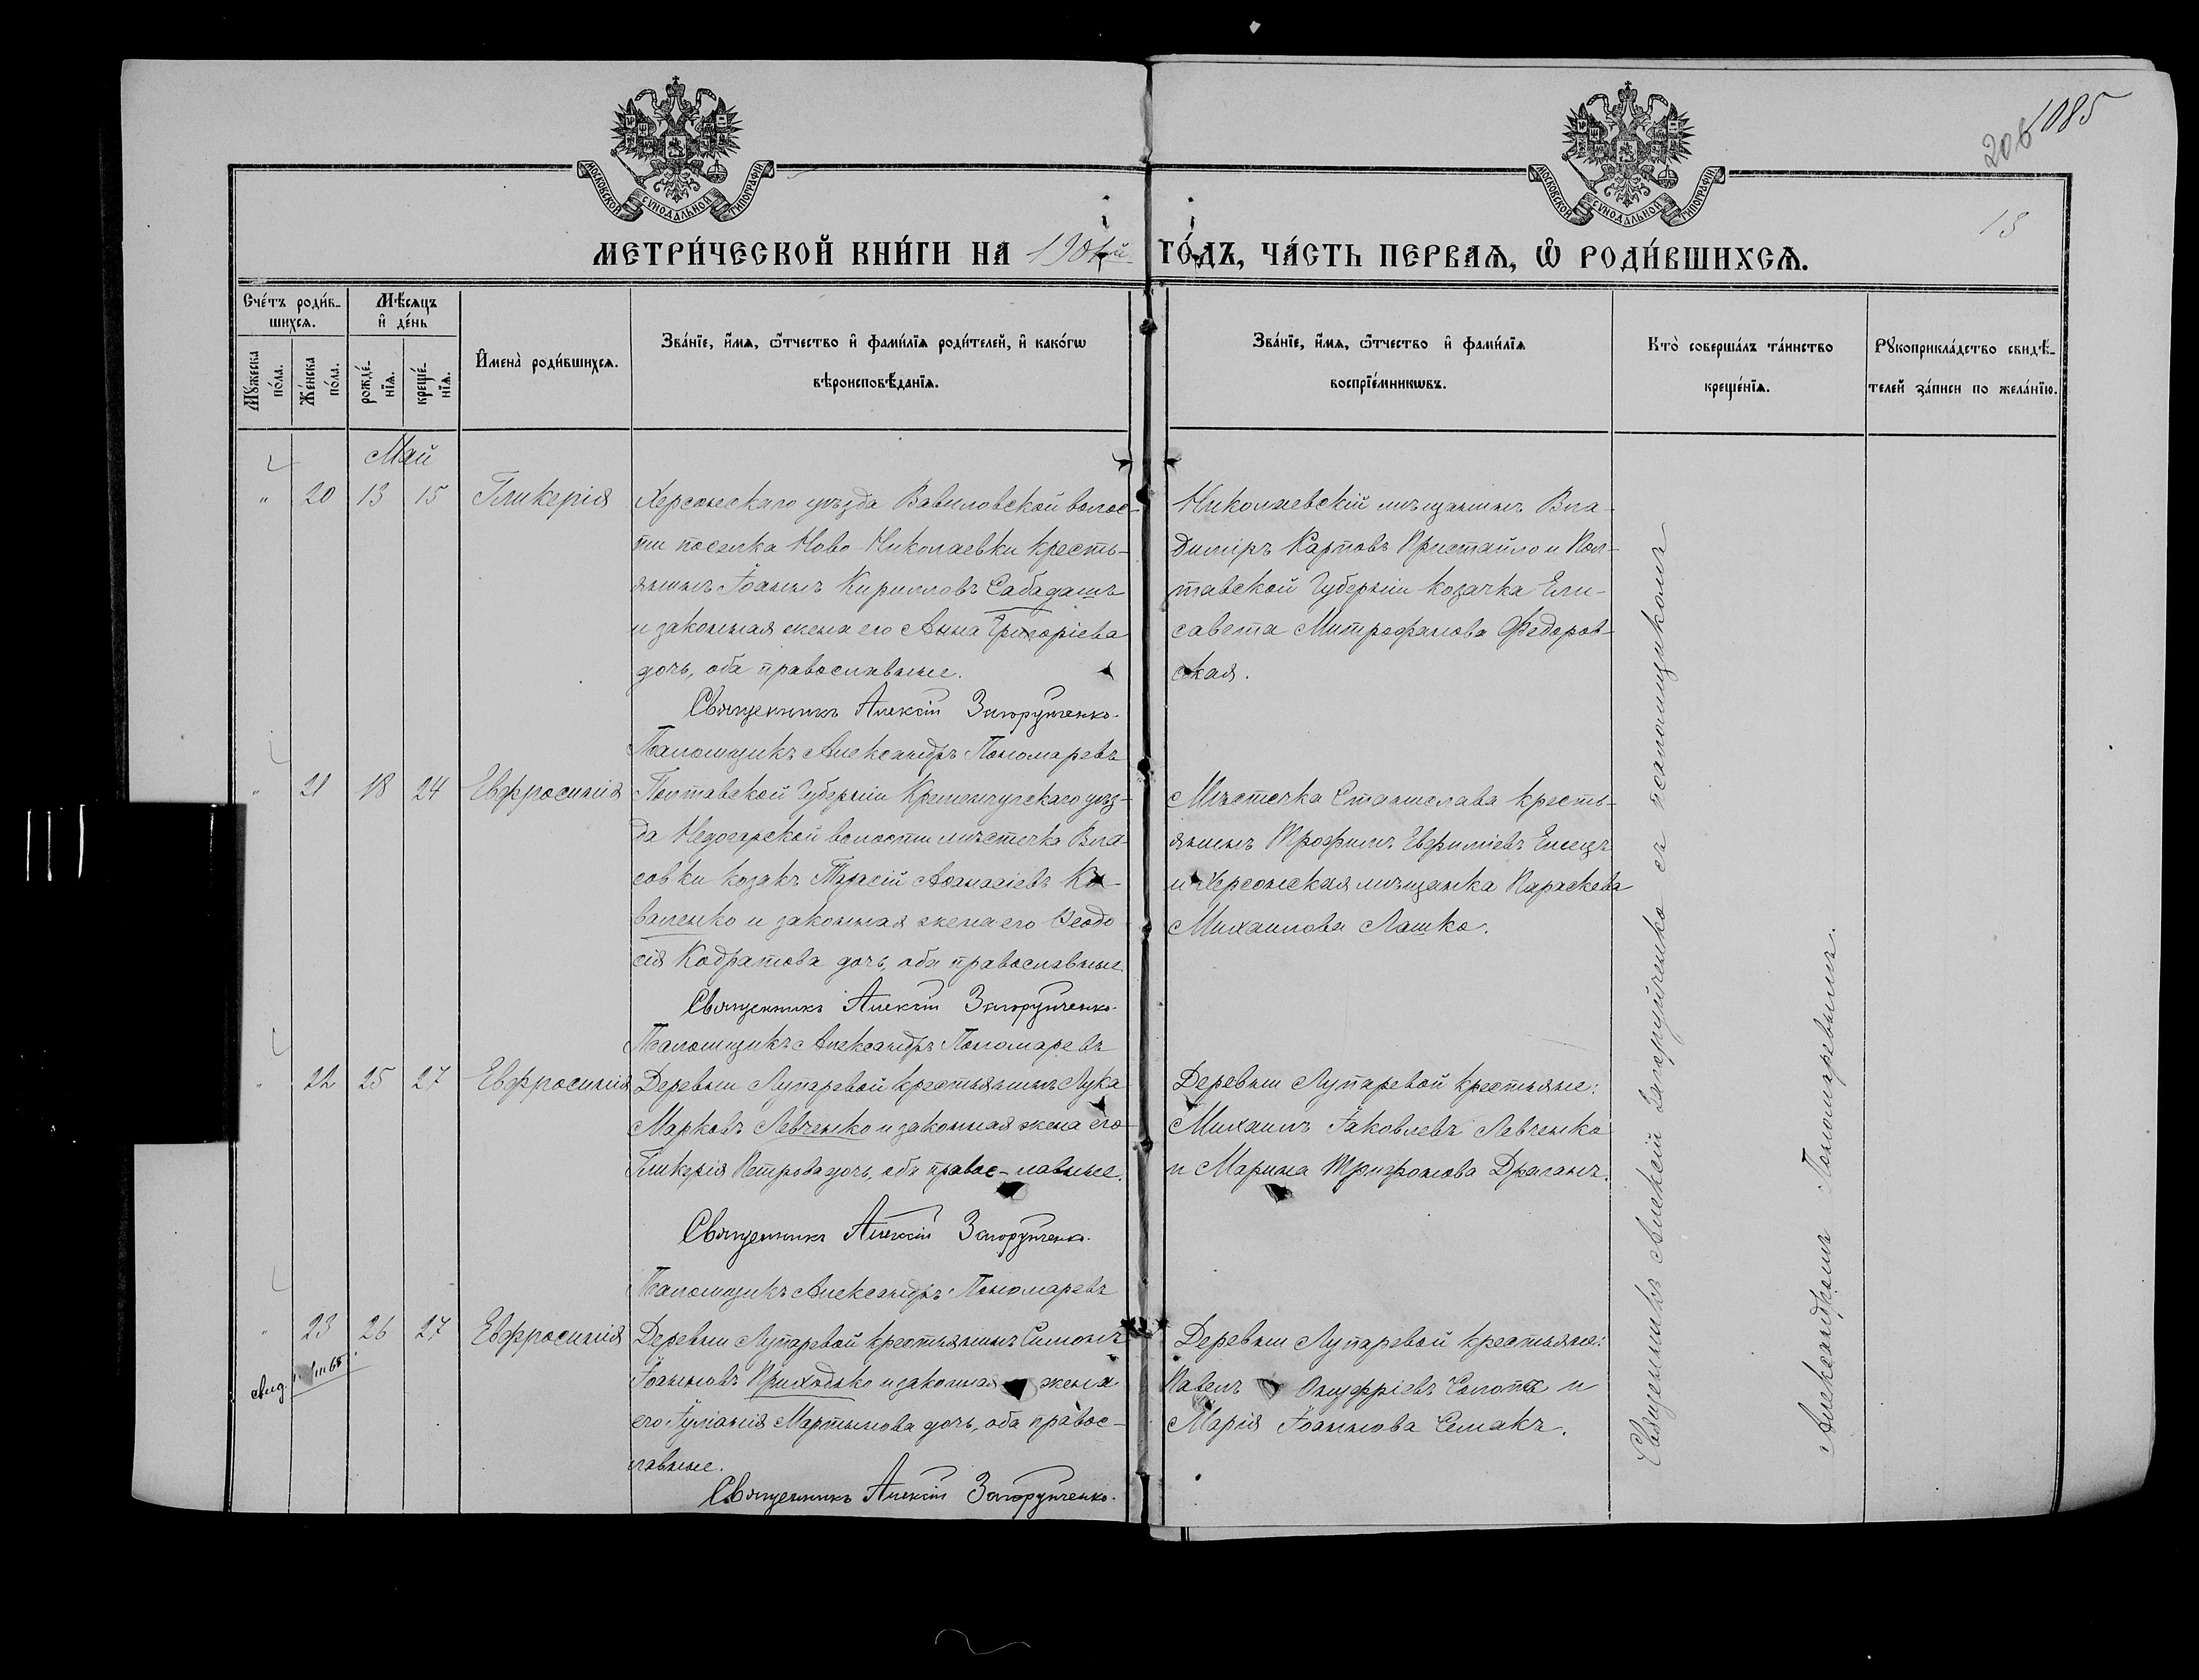 1085
206
13
МОСКОВСКОЙ СѴНОДАЛЬНОЙ ТИПОГРАФІИ
МОСКОВСКОЙ СѴНОДАЛЬНОЙ ТИПОГРАФІИ
МЕТРИ́ЧЕСКОЙ КНИ́ГИ НА 1901й ГО́ДЪ, ЧА́СТЬ ПЕРВАѦ, Ѿ РОДИ́ВШИХСѦ.
Сче́тъ роди́в-
шихсѧ.
Мѣ́сѧцъ
и҆ де́нь
Мꙋжеска по́ла.
Же́нска по́ла.
рожде́-
нїѧ.
креще́-
нїѧ.
И҆мена̀ роди́вшихсѧ.
Зва́нїе, и҆́мѧ, ѻ҆́тчество и҆ фами́лїѧ роди́телей, и҆ како́гѡ
вѣроисповѣ́данїѧ.
Зва́нїе, и҆́мѧ, ѻ҆́тчество и҆ фами́лїѧ
воспрїе́мникѡвъ.
Кто̀ соверша́лъ та́инство
креще́нїѧ.
Рꙋкоприкла́дство свидѣ́-
телей за́писи по жела́нїю.
Май
" 20 13 15 Гликерія
Херсонскаго уѣзда Вавиловской волос-
ти поселка Ново-Николаевки кресть-
янинъ Іоаннъ Кирилловъ Сабадашъ
и законная жена его Анна Григоріева
дочь, оба православные.
Священникъ Алексій Загорупченко.
Псаломщикъ Александръ Пономаревъ
Николаевскій мѣщанинъ Вла-
диміръ Карповъ Пристайло и Пол-
тавской Губерніи козачка Ели-
савета Митрофанова Федоров-
ская.
" 21 18 24 Евфросинія
Полтавской Губерніи Кременчугскаго уѣз-
да Недогарской волости мѣстечка Вла-
совки козакъ Тарасій Аѳанасіевъ Ко-
валенко и законная жена его Ѳеодо-
сія Кодратова дочь, оба православные.
Священникъ Алексій Загорупченко.
Псаломщикъ Александръ Пономаревъ
Мѣстечка Станислава кресть-
янинъ Трофимъ Евфиміевъ Елецъ
и Херсонская мѣщанка Параскева
Михаилова Лашко.
" 22 25 27 Евфросинія
Деревни Лупаревой крестьянинъ Лука
Марковъ Левченко и законная жена его
Гликерія Петрова дочь, оба правос-лавные.
Священникъ Алексій Загорупченко.
Псаломщикъ Александръ Пономаревъ
Деревни Лупаревой крестьяне:
Михаилъ Іаковлевъ Левченко
и Марина Трифонова Драганъ.
" 23 26 27 Евфросинія
Деревни Лупаревой крестьянинъ Симонъ
Іоанновъ Приходько и законная жена
его Іуліанія Мартынова дочь, оба правос-
лавные.
Священникъ Алексій Загорупченко.
Деревни Лупаревой крестьяне:
Павелъ Онуфріевъ и
Марія Іоаннова Семакъ.
Священникъ Алексій Загорупченко съ псаломщикомъ
Александромъ Пономаревымъ.